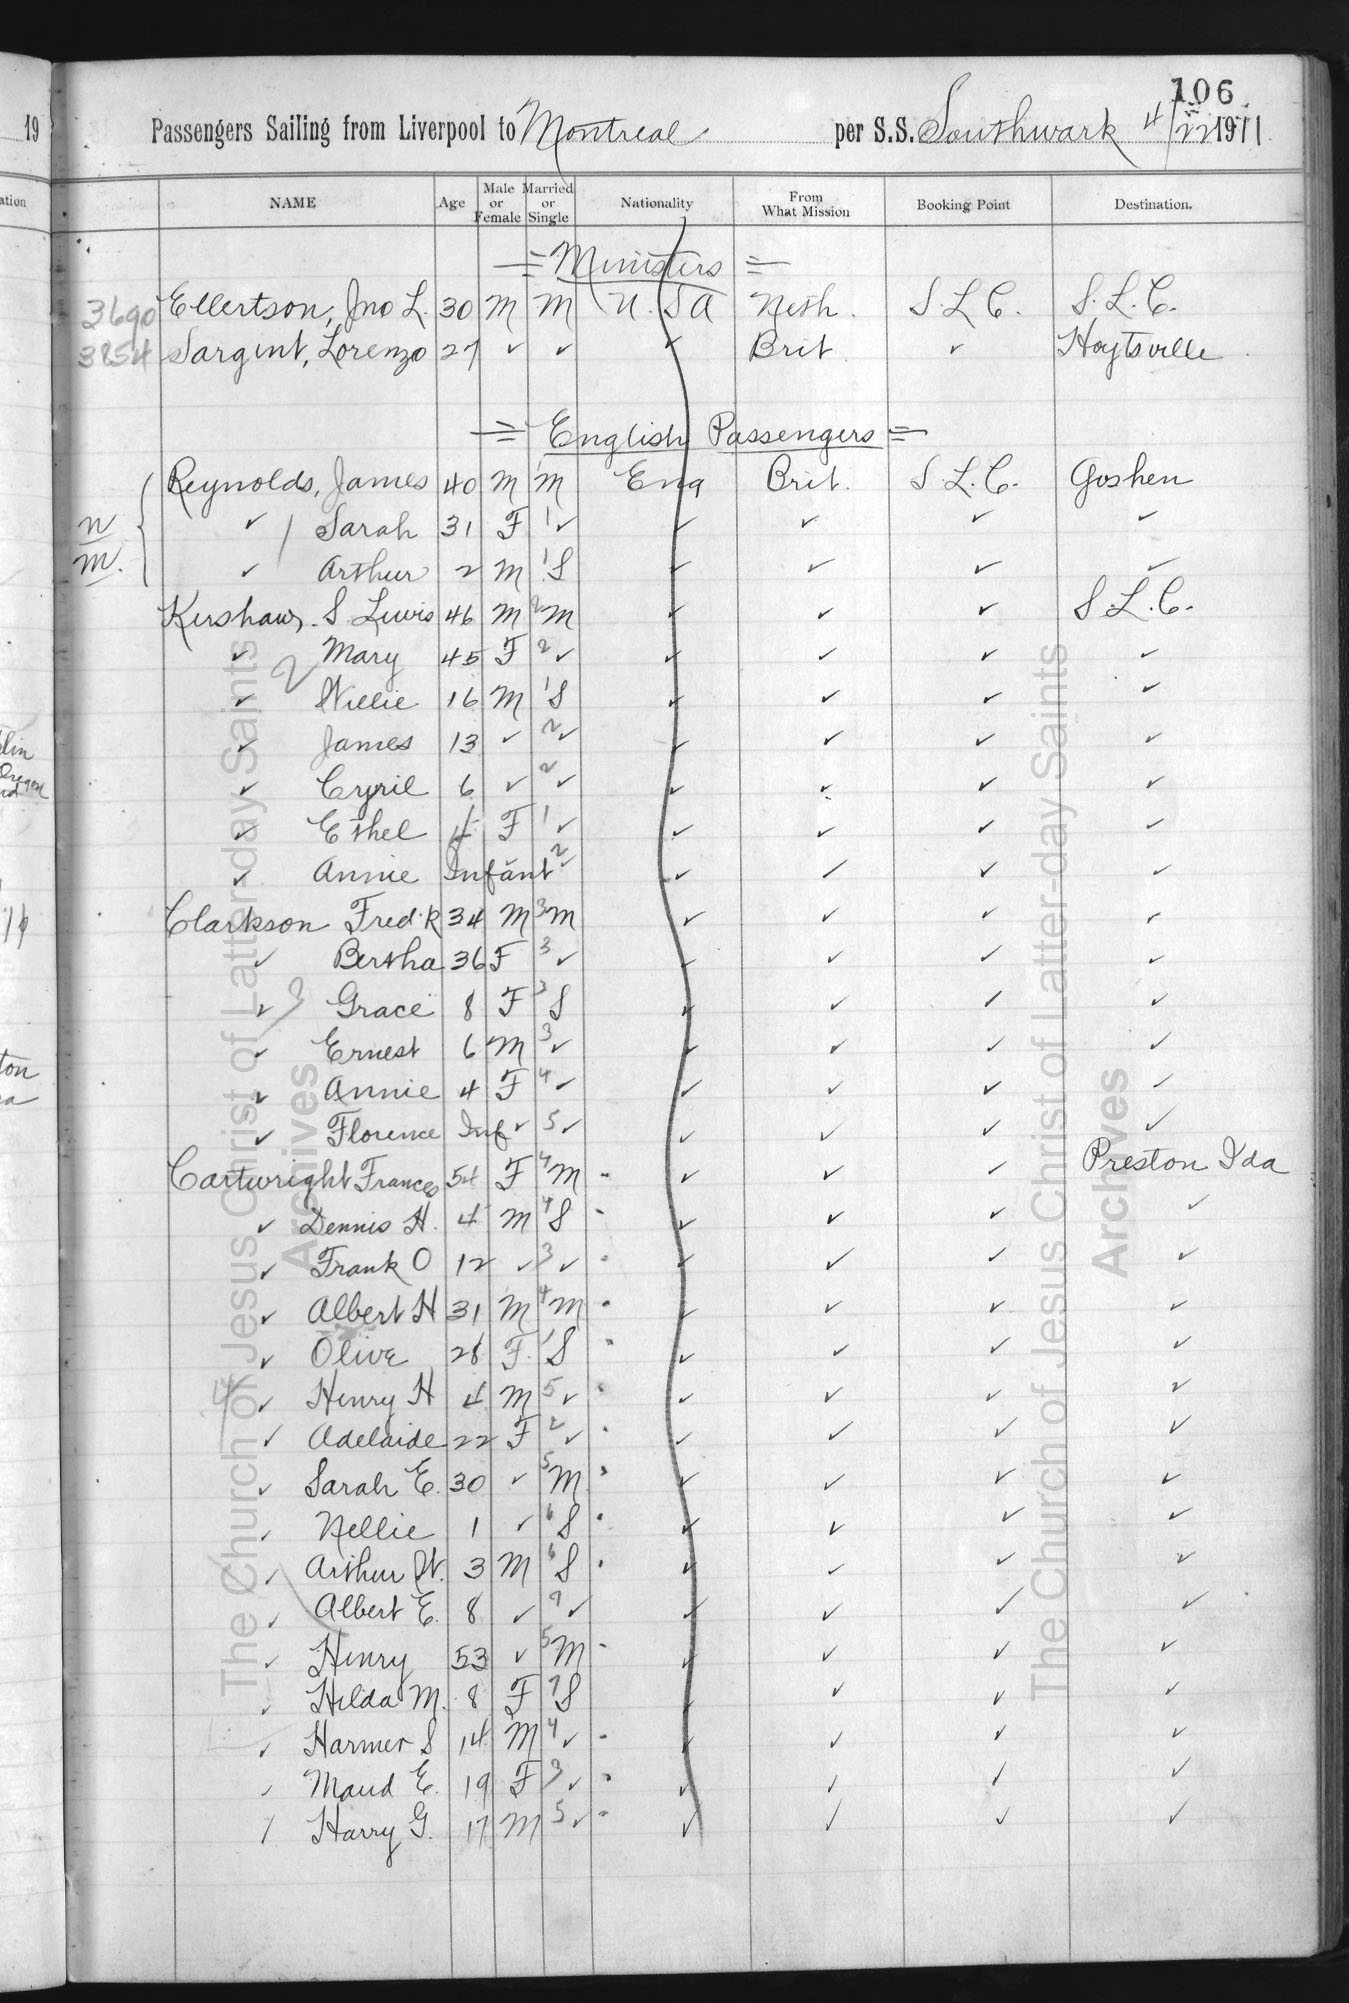 106
19 Passengers Sailing from Liverpool to Montreal per S.S. Southwark 4/22 1911
ation NAME Age Male or Female Married or Single Nationality From What Mission Booking Point Destination.
= Ministers =
3690 Ellertson, Jno L. 30 M M U.S.A Neth. S.L.C. S.L.C.
3854 Sargent, Lorenzo 27 ✓ ✓ ✓ Brit. ✓ Hoytsville
= English Passengers =
Reynolds, James 40 M 1 M Eng Brit. S.L.C. Goshen
n ✓ 1 Sarah 31 F 1 ✓ ✓ ✓ ✓ ✓
m. ✓ Arthur 2 M 1 S ✓ ✓ ✓ ✓
Kershaw, S. Lewis 46 M 2 M ✓ ✓ ✓ S.L.C.
✓ 2 Mary 45 F 2 ✓ ✓ ✓ ✓ ✓
✓ Willie 16 M 1 S ✓ ✓ ✓ ✓
✓ James 13 ✓ 2 ✓ ✓ ✓ ✓ ✓
✓ Cyril 6 ✓ 2 ✓ ✓ ✓ ✓ ✓
✓ Ethel F 1 ✓ ✓ ✓ ✓ ✓
✓ Annie Infant 2 ✓ ✓ ✓ ✓ ✓
Clarkson Fred'k 34 M 3 M ✓ ✓ ✓ ✓
✓ Bertha 36 F 3 ✓ ✓ ✓ ✓ ✓
✓ 3 Grace 8 F 3 S ✓ ✓ ✓ ✓
✓ Ernest 6 M 3 ✓ ✓ ✓ ✓ ✓
✓ Annie 4 F 4 ✓ ✓ ✓ ✓ ✓
✓ Florence Inf ✓ 5 ✓ ✓ ✓ ✓ ✓
Cartwright Frances 54 F 4 M ✓ ✓ ✓ Preston Ida
✓ Dennis H. 4 M 4 S ✓ ✓ ✓ ✓
✓ Frank O 12 ✓ 3 ✓ ✓ ✓ ✓ ✓
✓ Albert H 31 M 4 M ✓ ✓ ✓ ✓
✓ Olive 28 F. 1 S ✓ ✓ ✓ ✓
4 ✓ Henry H 4 M 5 ✓ ✓ ✓ ✓ ✓
✓ Adelaide 22 F 2 ✓ ✓ ✓ ✓ ✓
✓ Sarah E. 30 ✓ 5 M ✓ ✓ ✓ ✓
✓ Nellie 1 ✓ 6 S ✓ ✓ ✓ ✓
✓ Arthur W. 3 M 6 S ✓ ✓ ✓ ✓
✓ Albert E. 8 ✓ ✓ ✓ ✓ ✓ ✓
✓ Henry 53 ✓ 5 M ✓ ✓ ✓ ✓
✓ Hilda M. 8 F 7 S ✓ ✓ ✓ ✓
✓ Harmer S 14 M 4 ✓ ✓ ✓ ✓ ✓
✓ Maud E. 19 F 3 ✓ ✓ ✓ ✓ ✓
✓ Harry G. 17 M 5 ✓ ✓ ✓ ✓ ✓
The Church of Jesus Christ of Latter-day Saints
Archives
The Church of Jesus Christ of Latter-day Saints
Archives